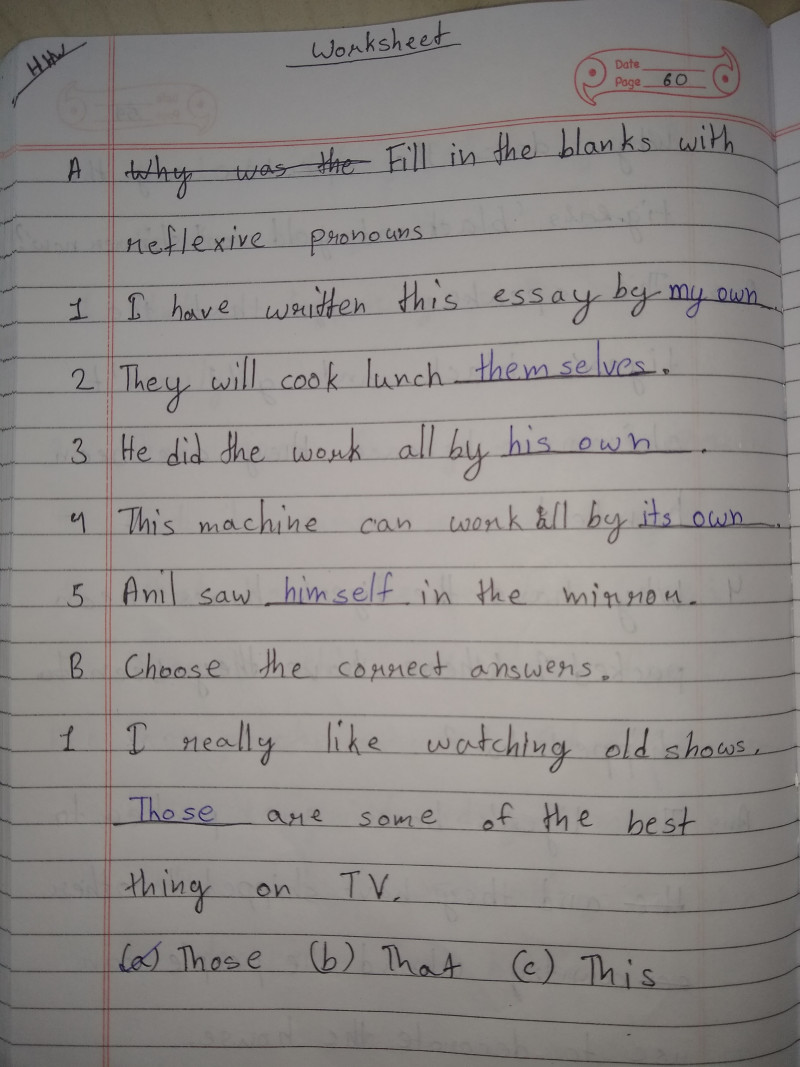 HW
Worksheet
Date
Page 60
A Why was the Fill in the blanks with
reflexive pronouns
1 I have written this essay by my own
2 They will cook lunch themselves.
3 He did the work all by his own.
4 This machine can work all by its own.
5 Anil saw himself in the mirror.
B Choose the correct answers.
1 I really like watching old shows.
Those are some of the best
thing on TV.
(a) Those (b) That (c) This